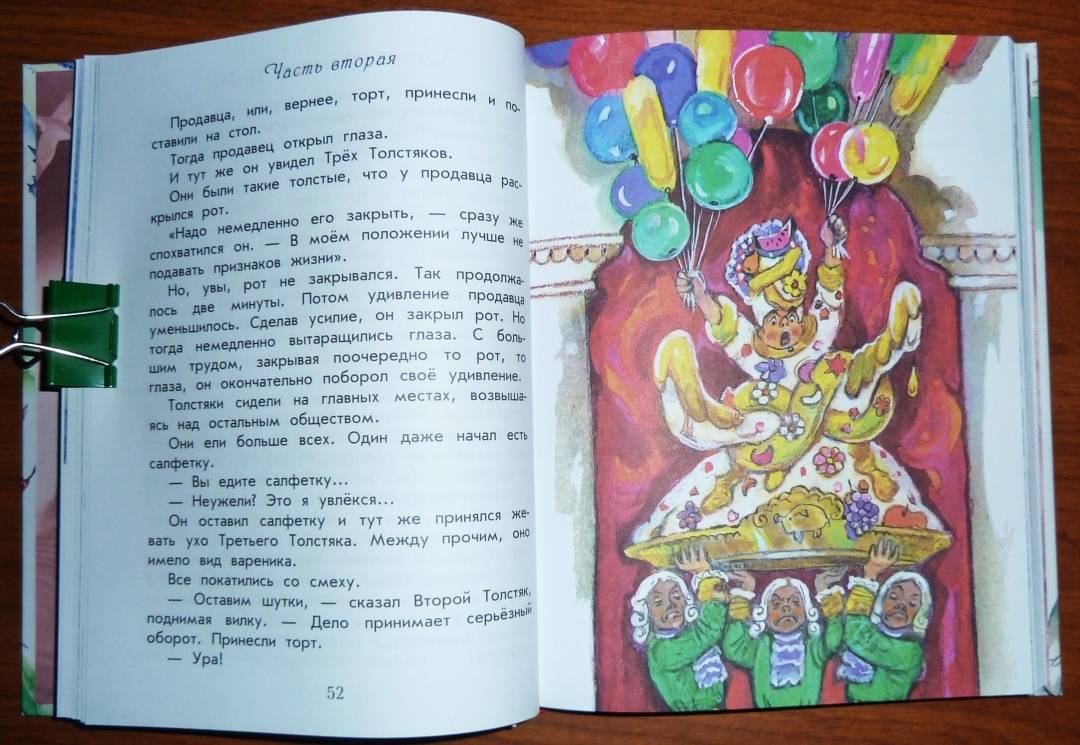 Часть вторая
Продавца, или, вернее, торт, принесли и по-
ставили на стол.
Тогда продавец открыл глаза.
И тут же он увидел Трёх Толстяков.
Они были такие толстые, что у продавца рас-
крылся рот.
«Надо немедленно его закрыть, — сразу же
спохватился он. — В моём положении лучше не
подавать признаков жизни».
Но, увы, рот не закрывался. Так продолжа-
лось две минуты. Потом удивление продавца
уменьшилось. Сделав усилие, он закрыл рот. Но
тогда немедленно вытаращились глаза. С боль-
шим трудом, закрывая поочередно то рот, то
глаза, он окончательно поборол своё удивление.
Толстяки сидели на главных местах, возвыша-
ясь над остальным обществом.
Они ели больше всех. Один даже начал есть
салфетку.
— Вы едите салфетку...
— Неужели? Это я увлёкся...
Он оставил салфетку и тут же принялся же-
вать ухо Третьего Толстяка. Между прочим, оно
имело вид вареника.
Все покатились со смеху.
— Оставим шутки, — сказал Второй Толстяк,
поднимая вилку. — Дело принимает серьёзный
оборот. Принесли торт.
— Ура!
52